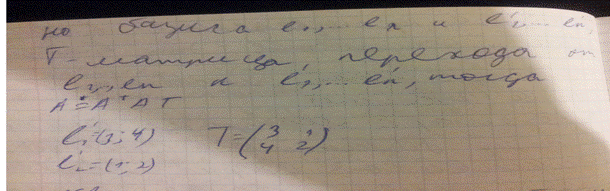 но базиса e₁,... eₙ и e'₁,... e'ₙ,
T-матрица, перехода от
e₁,,eₙ к e'₁,... eₙ, тогда
A = A T
e'₁=(3; 4) T=(3 1
4 2)
e'₂=(1; 2)